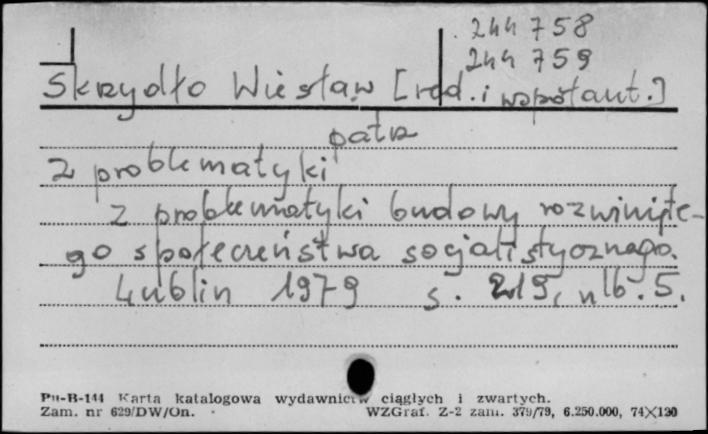 244 758
244 759
Skrzydło Wiesław [red. i współaut.]
patrz
Z problematyki
Z problematyki budowy rozwinięte-
go społeczeństwa socjalistycznego.
Lublin 1979 s. 219, nlb. 5.
Pu-B-144 Karta katalogowa wydawnictw ciągłych i zwartych.
Zam. nr 629/DW/On. WZGraf. Z-2 zam. 379/79, 6.250.000, 74×120